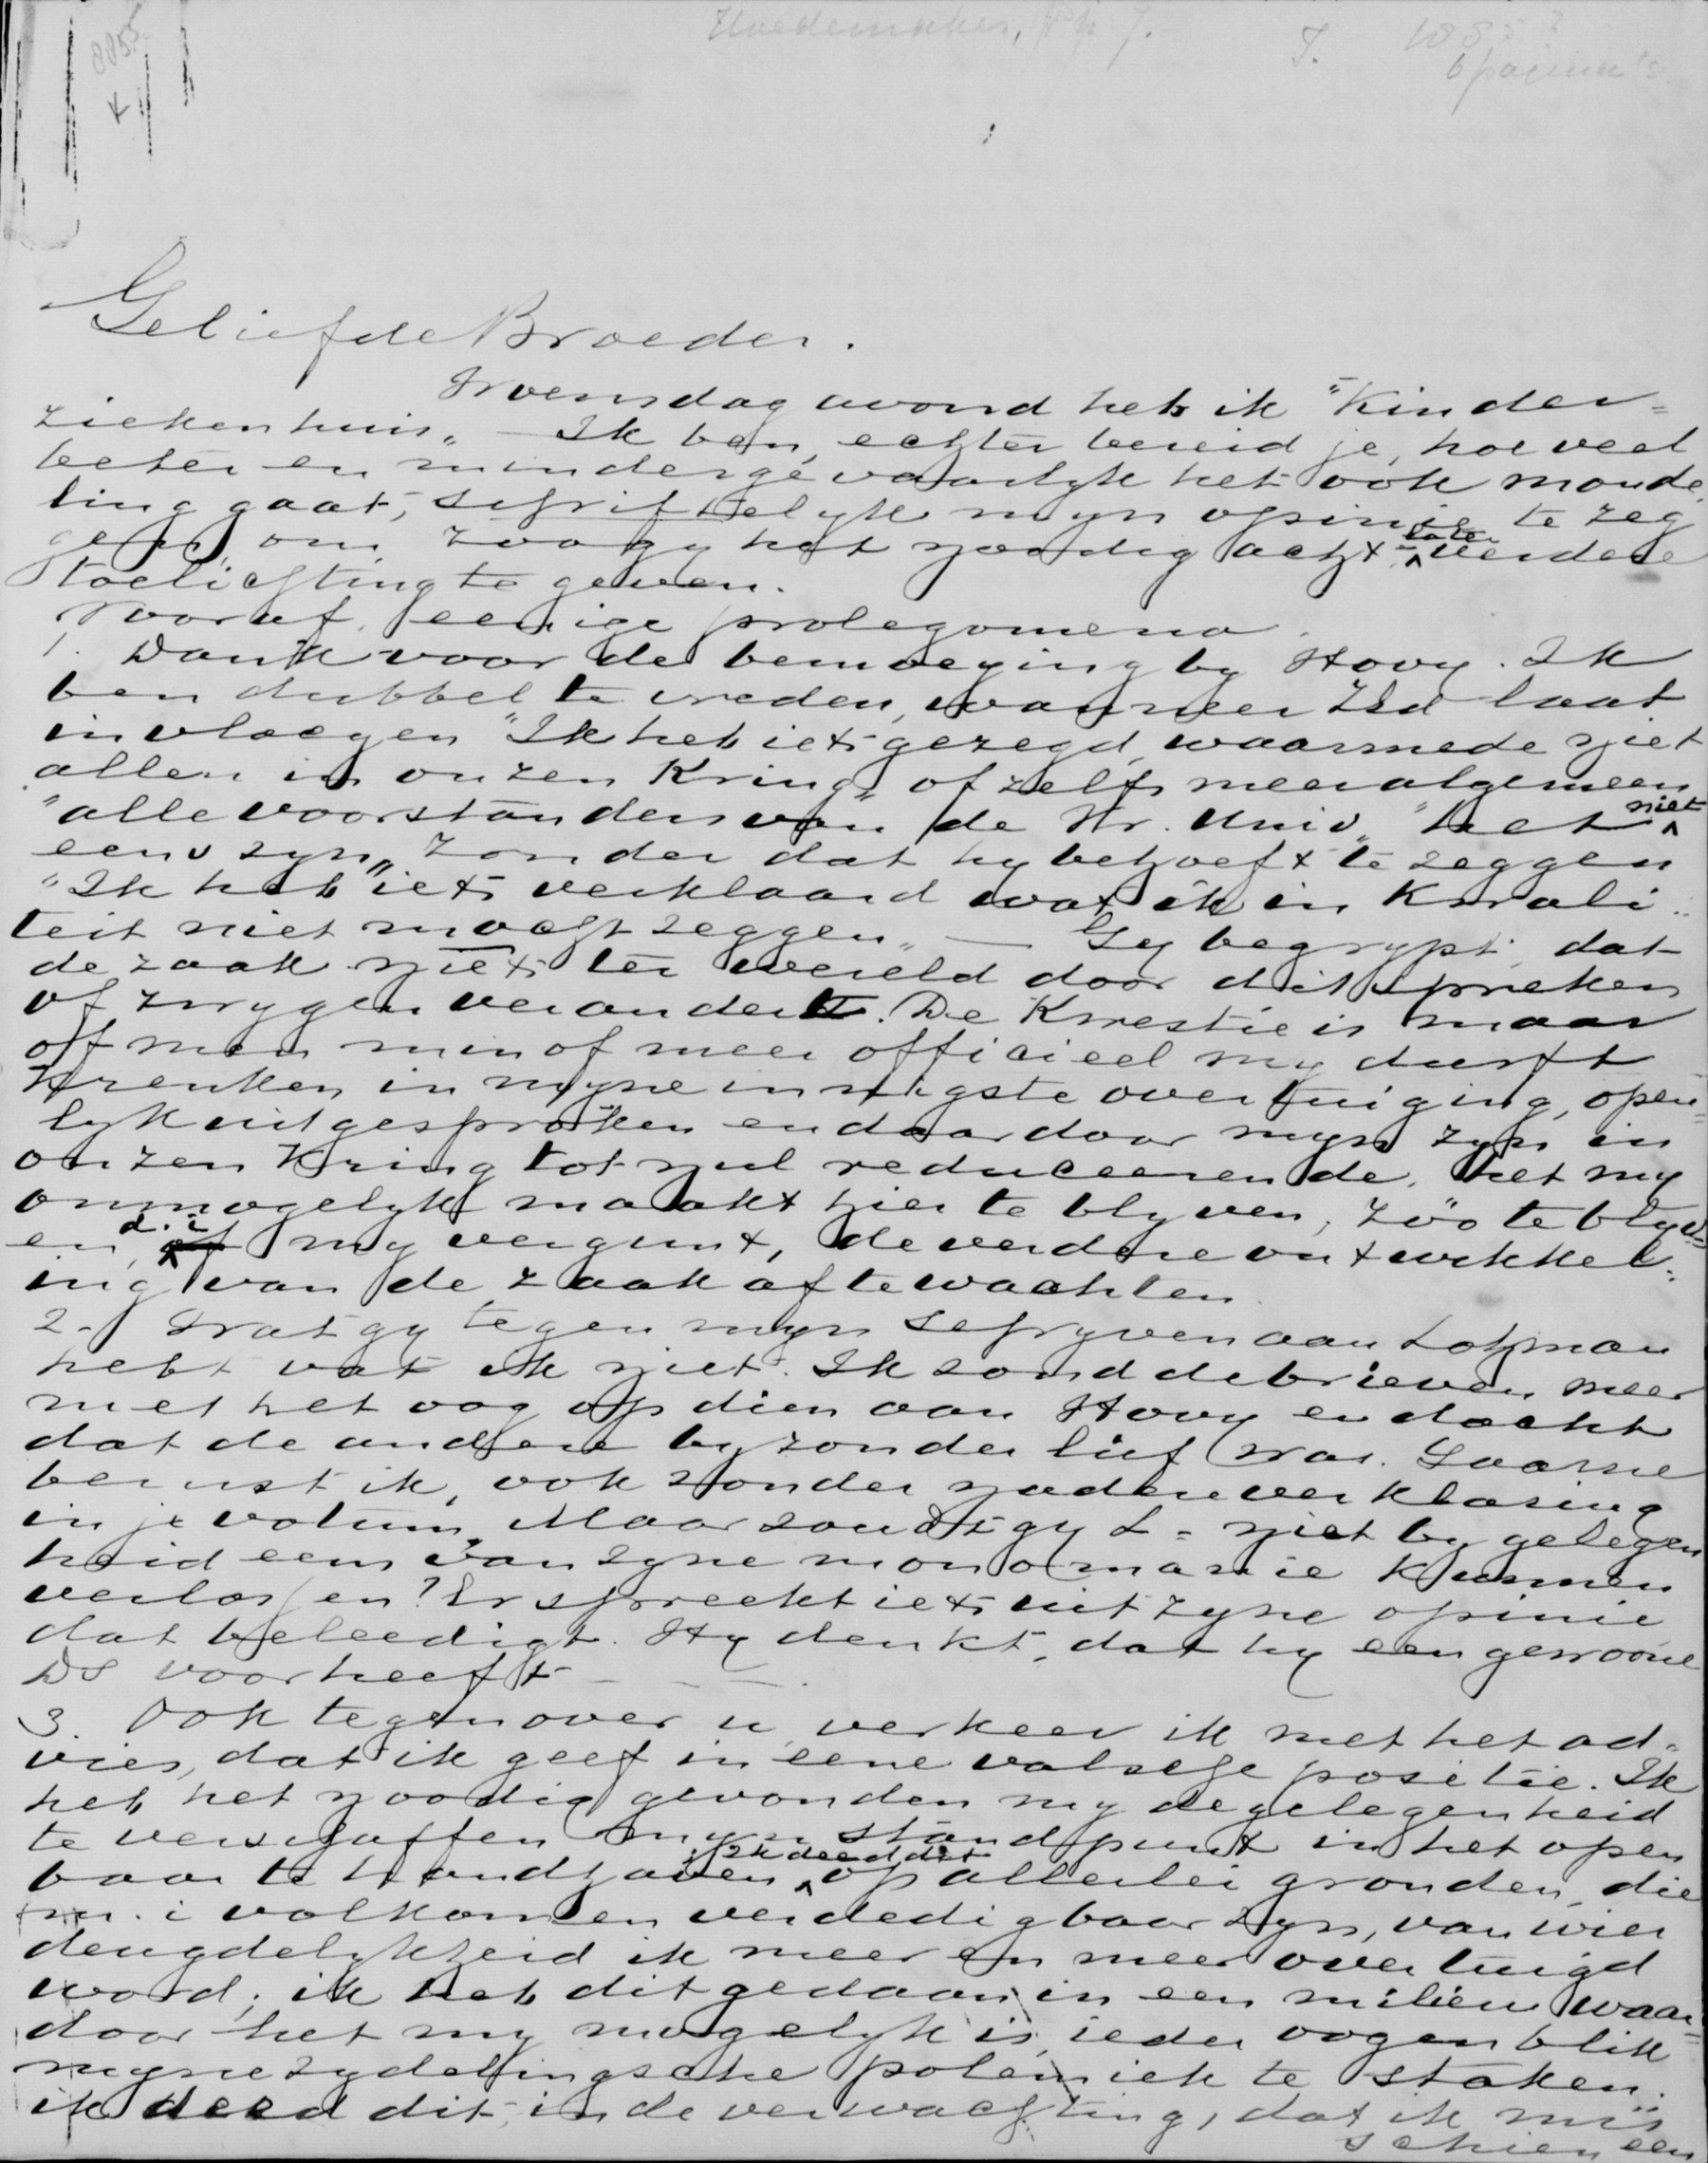 Hoedemaker, Ph. J. I. 188
6 pagina's
8855
Geliefde Broeder.
Woensdag avond heb ik "Kinder=
ziekenhuis„ — Ik ben, echter bereid je, hoeveel
beter en mindergevaarlyk het ook monde
ling gaat, schriftelyk myn opinie te zeg
gen, om zoo gy het noodig acht later verdere
toelichting te geven.
Vooraf eenige prolegomena.
1. Dank voor de bemoeying by Hovy. Ik
ben dubbel te vreden, wanneer laat
invloeyen "Ik heb iets gezegd, waarmede niet
allen in onzen Kring„ of zelfs meer algemeen
"alle voorstanders van de Vr. Univ„ "het niet
eens zyn„ zonder dat hy behoeft te zeggen
"Ik heb iets verklaard wat ik in Kwali=
teit niet mocht zeggen„ — Gy begrypt, dat
de zaak niets ter wereld door dit spreken
of zwygen verandert. De Kwestie is maar
of men min of meer officieel my durft
krenken in myne innigste overtuiging, open=
lyk uitgesproken en daardoor myn zyn in
onzen Kring tot nul reduceerende, het my
onmogelyk maakt hier te blyven, zóó te blyv=
en, d.i. my vergunt, de verdere ontwikkel=
ing van de zaak af te wachten.
2. Wat gy tegen myn schryven aan Lohman
hebt vat ik niet. Ik zond de brieven meer
met het oog op dien aan Hovy en dacht
dat de andere byzonder lief was. Gaarne
berust ik, ook zonder nadere verklaring
in je votum. Maar zoudt gy L = niet by gelegen
heid eens van zyne monomanie kunnen
verlossen? Er spreekt iets uit zyne opinie
dat beleedigt. Hy denkt, dat hy een gewone
DS voorheeft — — —.
3. Ook tegenover u verkeer ik met het ad=
vies, dat ik geef in eene valsche positie. Ik
heb het noodig gevonden my de gelegenheid
te verschaffen myn standpunt in het open
baar te handhaven; Ik deed dit op allerlei gronden, die
m. i volkomen verdedigbaar zyn, van wier
deugdelykheid ik meer en meer overtuigd
word; ik heb dit gedaan in een milieu waar=
door het my mogelyk is ieder oogenblik
myne zydelingsche polemiek te staken.
ik deed dit, in de verwachting, dat ik mis
schien een